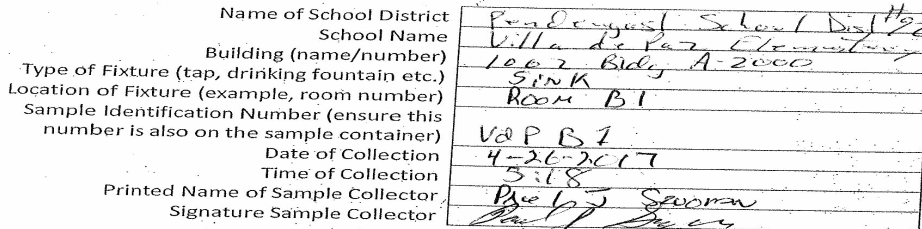 Name of School District Pendergast School Dist #92
School Name Villa de Paz Elementary
Building (name/number) 1002 Bldg A-2000
Type of Fixture (tap, drinking fountain etc.) SINK
Location of Fixture (example, room number) ROOM B1
Sample Identification Number (ensure this
number is also on the sample container) VdP B1
Date of Collection 4-26-2017
Time of Collection 5:18
Printed Name of Sample Collector
Signature Sample Collector